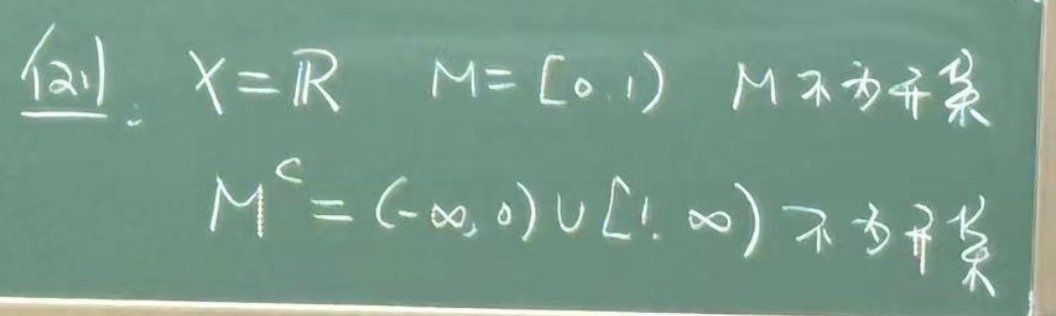 例: X = ℝ M = [0.1) M不为开集
Mᶜ = (-∞,0)∪[1. ∞) 不为开集